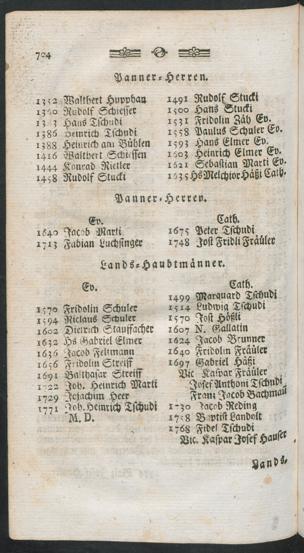 704
Panner-Herren.
1352 Walthert Hupphan
1360 Rudolf Schiesser
Hans Tschudi
1386 Heinrich Tschudi
1388 Heinrich am Bühlen
1416 Walthert Schiessen
1444 Konrad Rietler
1458 Rudolf Stucki
1491 Rudolf Stucki
1500 Hans Stucki
1531 Fridolin Zäy Ev.
1558 Paulus Schuler Ev.
1593 Hans Elmer Ev.
1603 Heinrich Elmer Ev.
1621 Sebastian Marti Ev.
1635 Hs Melchior Häßi Cath.
Panner-Herren.
Ev.
1640 Jacob Marti
1713 Fabian Luchsinger
Cath.
1675 Peter Tschudi
1748 Jost Fridli Fräüler
Lands-Haubtmänner.
Ev.
1570 Fridolin Schuler
1594 Niclaus Schuler
1602 Dietrich Stauffacher
1632 Hs Gabriel Elmer
1636 Jacob Feldmann
1656 Fridolin Streiff
1691 Balthasar Streiff
1722 Joh. Heinrich Marti
1729 Joachim Heer
1771 Joh. Heinrich Tschudi
M. D.
Cath.
1499 Marquard Tschudi
1514 Ludwig Tschudi
1570 Jost Hößli
1607 N. Gallatin
1624 Jacob Brunner
1640 Fridolin Fräüler
1697 Gabriel Häßi
Vic. Kaspar Fräüler
Josef Anthoni Tschudi
Franz Jacob Bachman
1730 Jacob Reding
1758 Baptist Landolt
1768 Fidel Tschudi
Vic. Kaspar Josef Hauser
Lands-